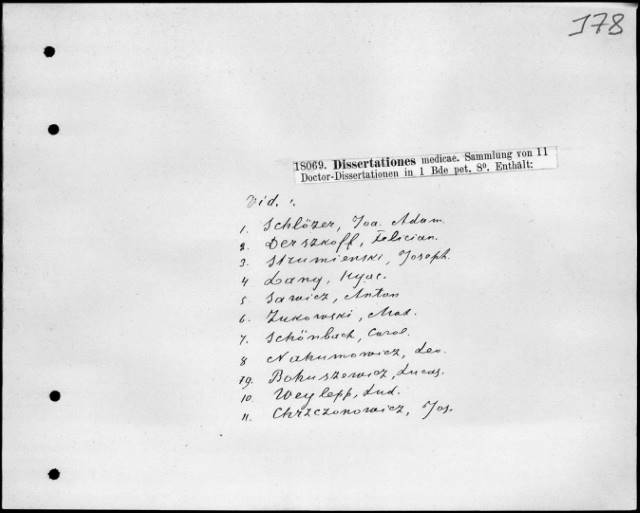 178
18069. Dissertationes medicae. Sammlung von 11
Doctor-Dissertationen in 1 Bde pet. 8°. Enthält:
Vid. :
1. Schlözer, Joa. Adam.
2. Derszkoff, Felician.
3. Strumienski, Joseph.
4 Lany, Hyac.
5 Sawicz, Anton
6. Zukowski,
7. Schönbach, Carol.
8 Nahumowicz, Leo.
9. Bohuszewicz, Lucas.
10. Weylepp, Lud.
11. Chrzczonowicz, Jos.